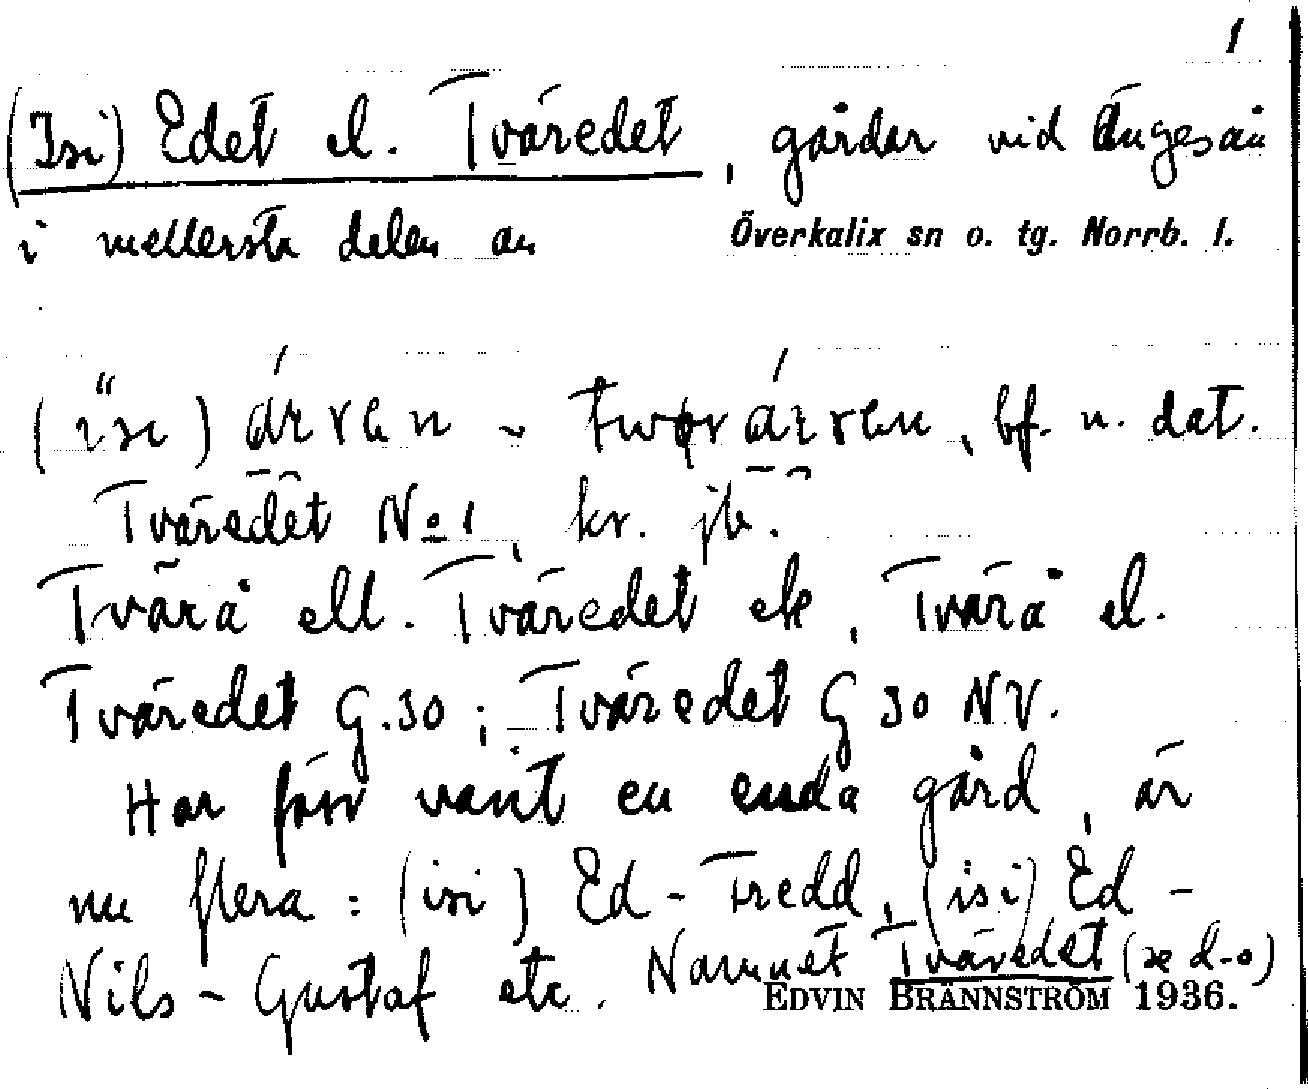 1
(Isi) Edet el. Tväredet, gårdar vid Ängesån
i mellersta delen av Överkalix sn o. tg. Norrb. l.
bf. n. dat.
Tväredet No 1, kr. jb.
Tvärå ell. Tväredet ek, Tvärå el.
Tväredet G.30; Tväredet G 30 NV.
Har förr varit en enda gård, är
nu flera: (isi) Ed-Fredd, (isi) Ed-
Nils-Gustaf etc. Namnet Tväredet
EDVIN BRÄNNSTRÖM 1936.